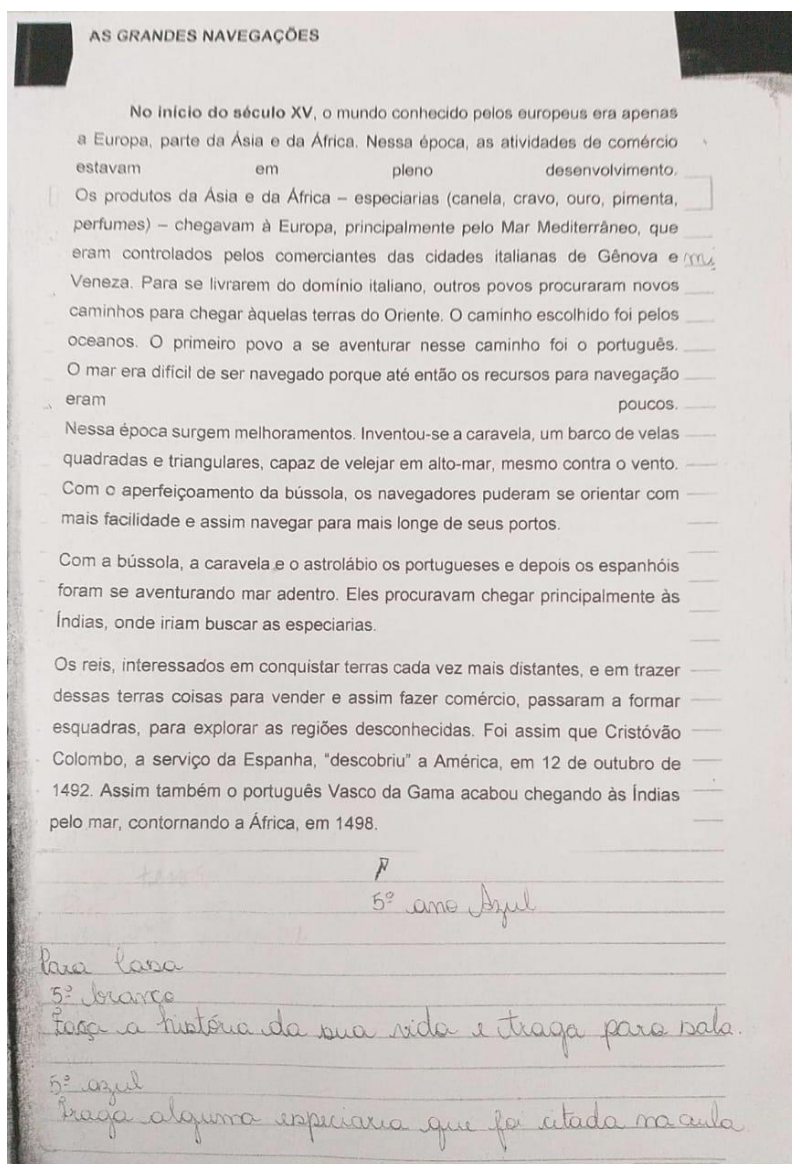 AS GRANDES NAVEGAÇÕES
No início do século XV, o mundo conhecido pelos europeus era apenas
a Europa, parte da Ásia e da África. Nessa época, as atividades de comércio
estavam em pleno desenvolvimento.
Os produtos da Ásia e da África – especiarias (canela, cravo, ouro, pimenta,
perfumes) – chegavam à Europa, principalmente pelo Mar Mediterrâneo, que
eram controlados pelos comerciantes das cidades italianas de Gênova e
Veneza. Para se livrarem do domínio italiano, outros povos procuraram novos
caminhos para chegar àquelas terras do Oriente. O caminho escolhido foi pelos
oceanos. O primeiro povo a se aventurar nesse caminho foi o português.
O mar era difícil de ser navegado porque até então os recursos para navegação
eram poucos.
Nessa época surgem melhoramentos. Inventou-se a caravela, um barco de velas
quadradas e triangulares, capaz de velejar em alto-mar, mesmo contra o vento.
Com o aperfeiçoamento da bússola, os navegadores puderam se orientar com
mais facilidade e assim navegar para mais longe de seus portos.
Com a bússola, a caravela e o astrolábio os portugueses e depois os espanhóis
foram se aventurando mar adentro. Eles procuravam chegar principalmente às
Índias, onde iriam buscar as especiarias.
Os reis, interessados em conquistar terras cada vez mais distantes, e em trazer
dessas terras coisas para vender e assim fazer comércio, passaram a formar
esquadras, para explorar as regiões desconhecidas. Foi assim que Cristóvão
Colombo, a serviço da Espanha, “descobriu” a América, em 12 de outubro de
1492. Assim também o português Vasco da Gama acabou chegando às Índias
pelo mar, contornando a África, em 1498.
5º ano Azul
Para Casa
5º branco
Faça a história da sua vida e traga para sala.
5º azul
Traga alguma especiaria que foi citada na aula